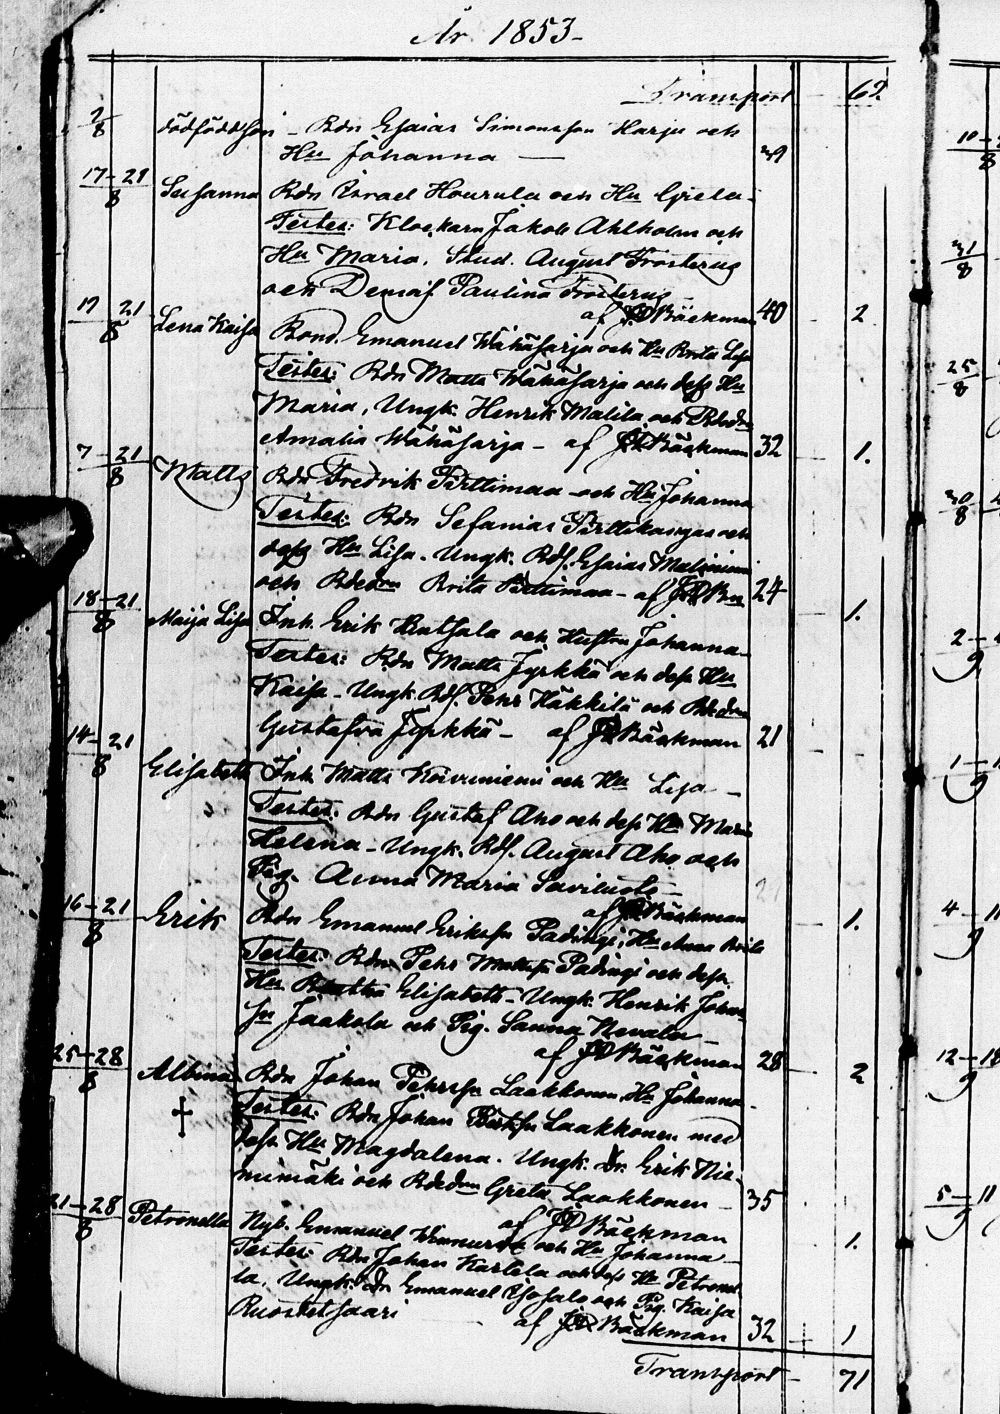 År 1853-
Transport 62.
2/8 dödföddson - Bdn Esaias Simonsson Harju och
Hu Johanna — 39
17-21/8 Susanna Bdn Israel Hourula och Hu Greta-
Testes: Klockarn Jakob Ahlholm och
Hu Maria, Stud. August Frosterus
och Demois Paulina Frosterus
af JD Bäckman 40 2
19 21/8 Lena Kaisa Bond. Emanuel Wähäsarja och Hu Brita Lisa
Testes: Bdn Matts Wähäsarja och dess Hu
Maria, Ungk. Henrik Matila och Bdedrn
Amalia Wähäsarja - af JD Bäckman 32 1.
7-21/8 Matts Bdn Fredrik Pirttimaa och Hu Johanna
Testes: Bdn Sefanias Pirttikangas och
dess Hu Lisa. Ungk. Bds. Esaias
och Bdedrn Brita Pirttimaa - af JD Bn 24 1.
18-21/8 Maija Lisa Inh. Erik och Hustru Johanna-
Testes: Bdn Matts Jyrkkä och dess Hu
Kaisa - Ungk. Bds. Pehr Häkkilä och Bdedrn
Gustafva Jyrkkä - af JD Bäckman 21
14-21/8 Elisabeth Inh. Matts Koivuniemi och Hu Lisa -
Testes: Bdn Gustaf Aho och dess Hu Maria
Helena - Ungk. Bds. August Aho och
Pig. Anna Maria Saviluoto -
af JD Bäckman 1.
16-21/8 Erik Bdn Emanuel Eriksson Padingi, Hu Anna Brita
Testes: Bdn Pehr Mattsson Padingi och dess
Hu Elisabeth - Ungk. Henrik Johans
Sn Jaakola och Pig. Sanna Nevala -
af JD Bäckman 28 2
25-28/8 Albina Bdn Johan Pehrssn Laakkonen, Hu Johanna -
† Testes: Bdn Johan Laakkonen med
dess Hu Magdalena. Ungk. Dr. Erik Nie-
mimäki och Bdedrn Greta Laakkonen -
af JD Bäckman 35 1.
21-28/8 Petronella Nyb. Emanuel och Hu Johanna -
Testes: Bdn Johan Kartela och dess Hu Petronel-
la, Ungk. Dr. Emanuel och Pig. Kaisa
Ruostetsaari af JD Bäckman 32 1
Transport - 71
10-2/8
31/8
25/8
30/8
2-/9
1-1/9
4-11/9
12-18/9
5-11/9